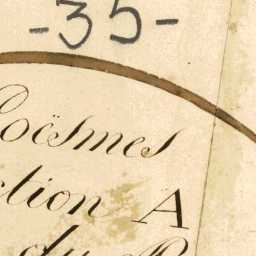 -35-
oësmes
ction A
du